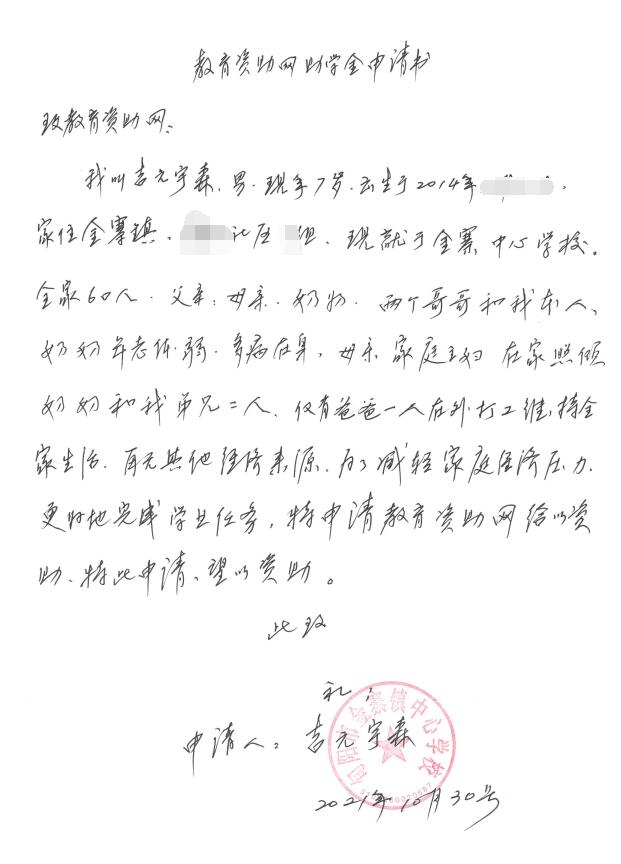 教育资助网助学金申请书
致教育资助网：
我叫吉元宇森，男，现年7岁，出生于2014年
家住金寨镇，社区 组，现就于金寨中心学校。
全家60人，父亲，母亲，奶奶，两个哥哥和我本人，
奶奶年老体弱，多病在身，母亲家庭主妇在家照顾
奶奶和我弟兄二人，仅有爸爸一人在外打工维持全
家生活，再无其他经济来源，为了减轻家庭经济压力
更好地完成学业任务，特申请教育资助网给以资
助，特此申请，望以资助。
此致
礼！
申请人：吉元宇森
2021年10月30号
旬阳市金寨镇中心学校